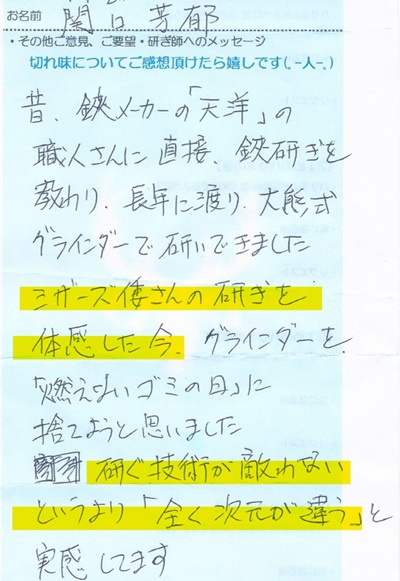 お名前 関口芳郁
・その他ご意見、ご要望・研ぎ師へのメッセージ
切れ味についてご感想頂けたら嬉しです(.-人-.)
昔、鋏メーカーの「天洋」の
職人さんに直接、鋏研ぎを
教わり、長年に渡り、大熊式
グラインダーで研いできました
ミザーズ倭さんの研ぎを
体感した今、グラインダーを
「燃えないゴミの日」に
捨てようと思いました
研ぐ技術が敵わない
というより「全く次元が違う」と
実感してます